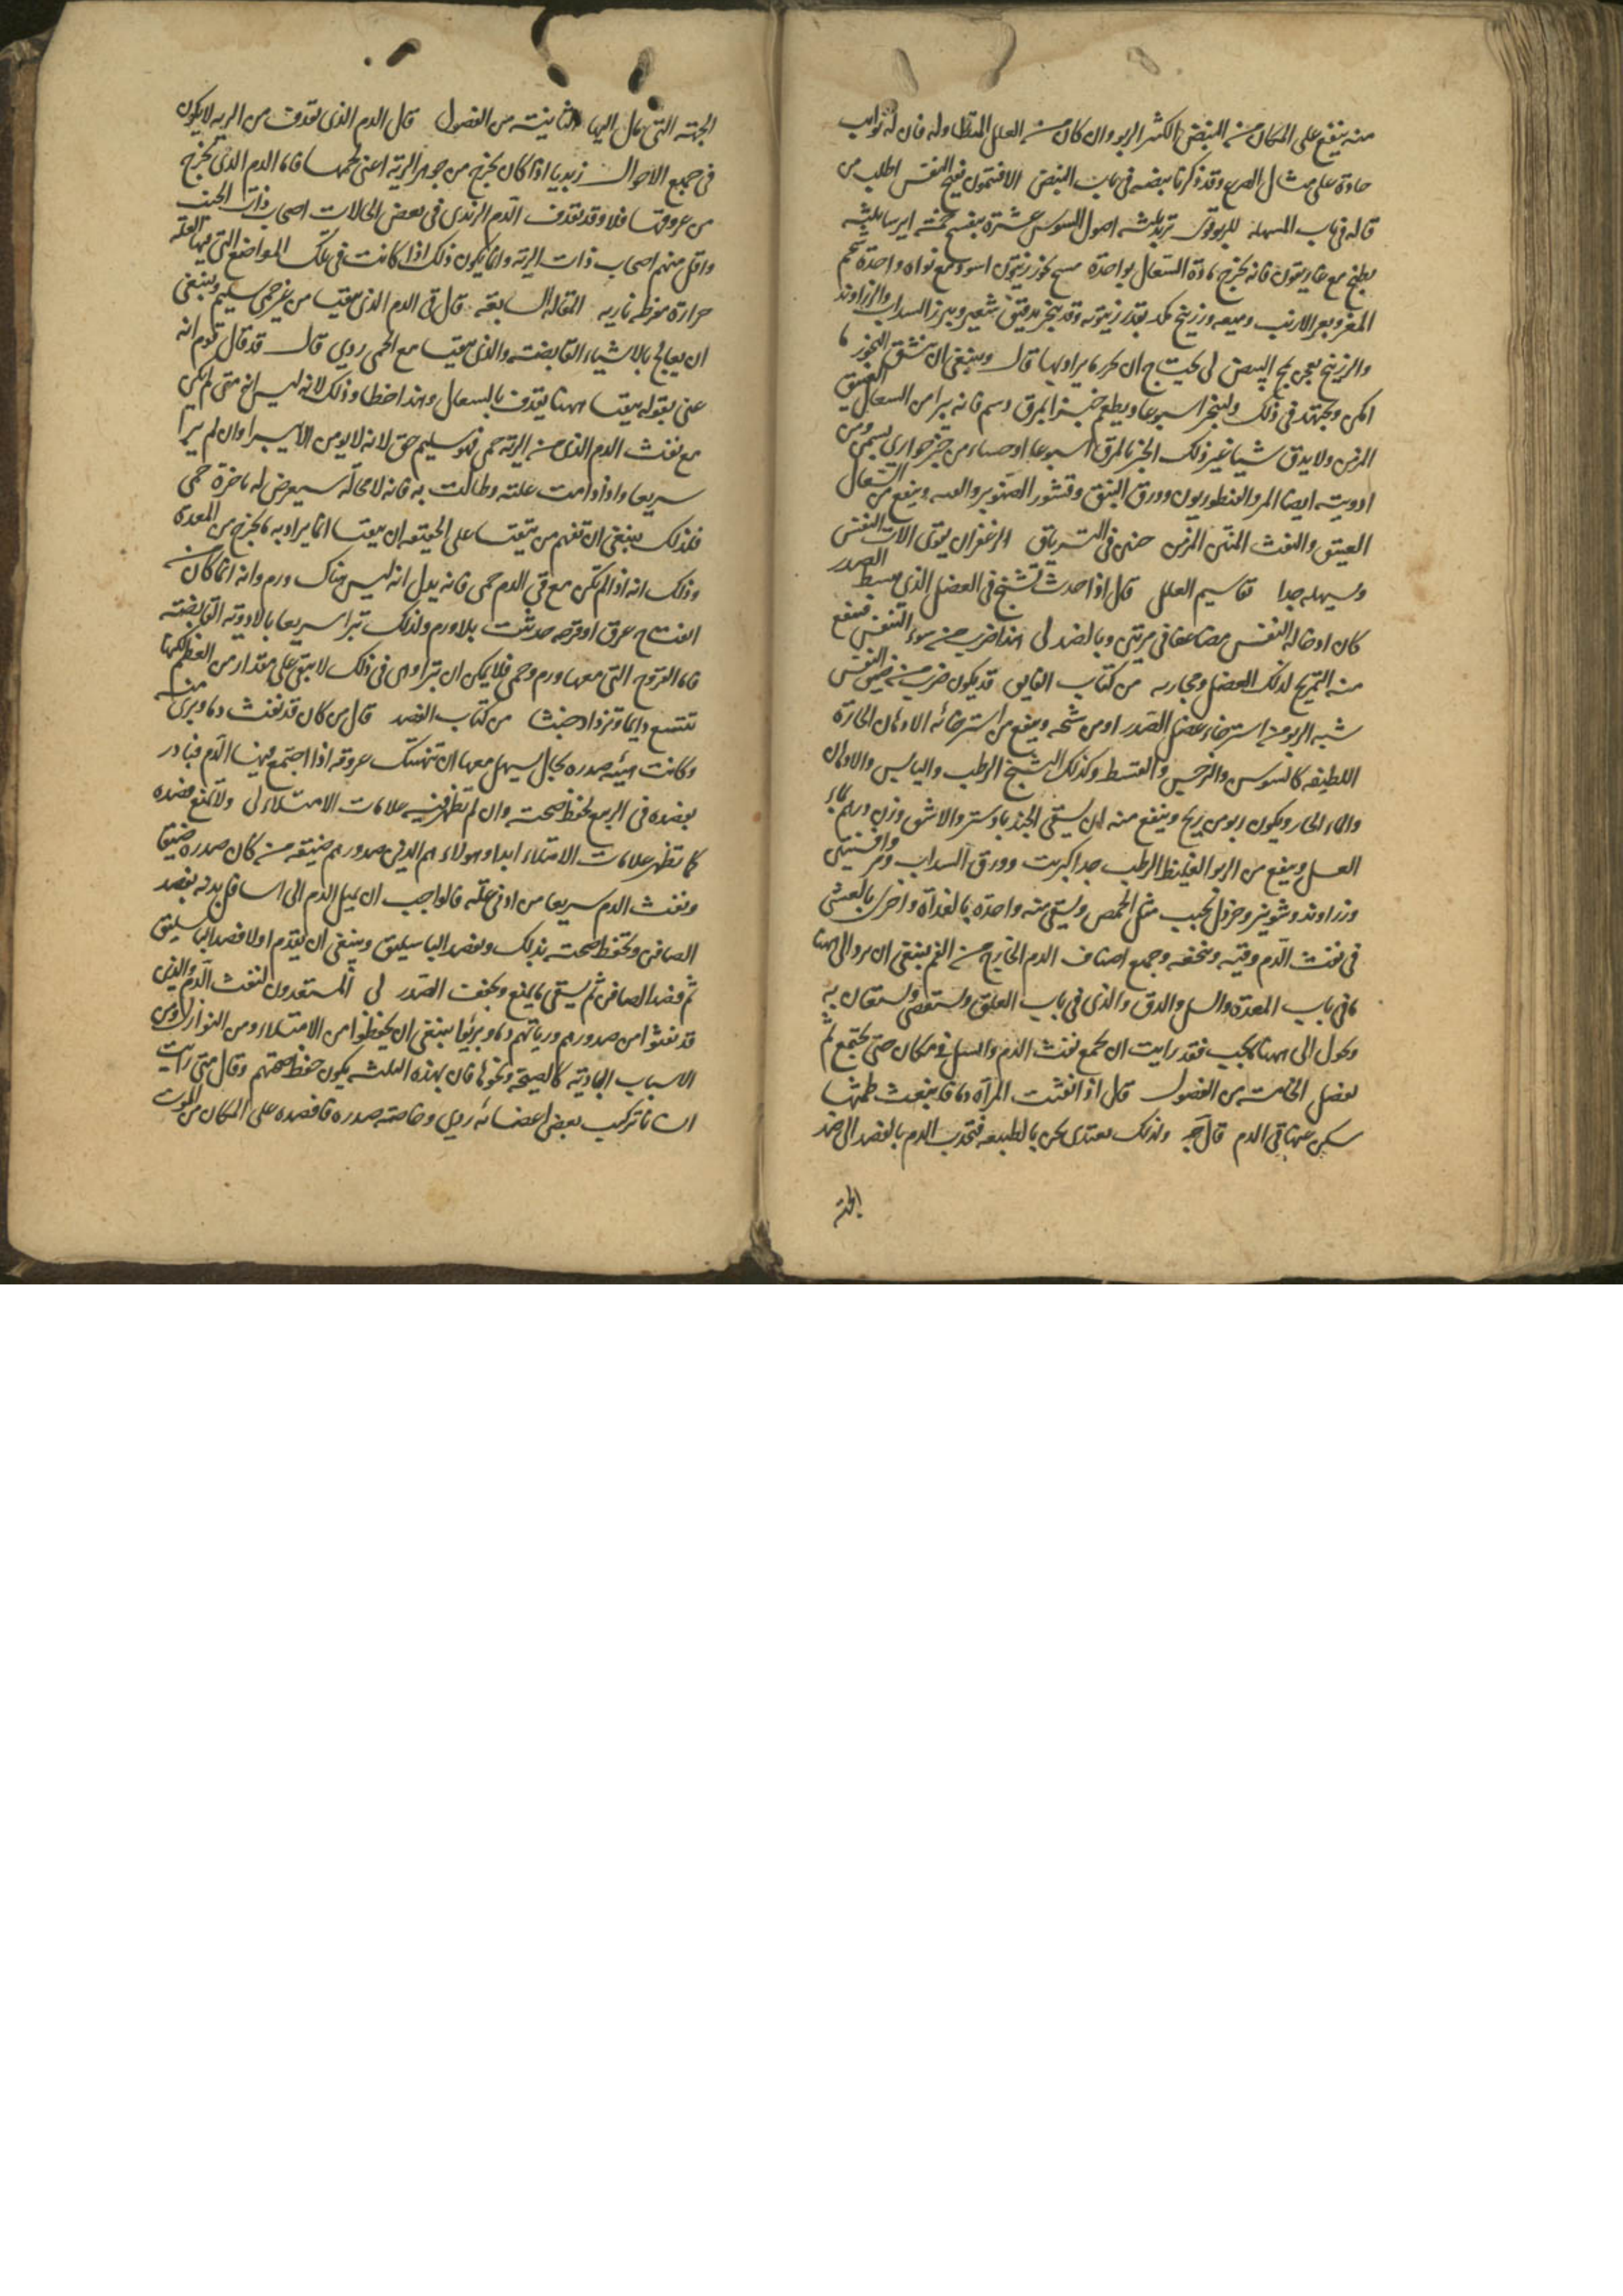 منه ينفع على المكان من النبض الكثير الربو وان كان من العلل المتطاوله فان له نوايب
حادة على مثال الصرع وقد ذكرنا بعضه في باب النبض الافتيمون نفع النفس اطلب من
قاله في باب المسهله للربو قوى تربد ثلثه اصول السوس عشرة بنفسج خمسه ايرسا ثلثه
يطبخ مع غاريقون فانه يخرج مادة السعال بواحدة جوز زيتون اسود مع نواه واحدة شحم
المعز وبعر الارنب وميعه وزرنيخ بقدر زيتونه وقد يبخر بدقيق شعير وبزر السداب والزراوند
والزرنيخ يعجن بمح البيض لى يحتاج ان يداويها قال وينبغي ان ينشق البخور ما
امكن ويجتهد في ذلك وليبخر اسبوعا ويطعم خبزا بمرق دسم فانه يبرا من السعال العتيق
المزمن ولا يذق شيا غير ذلك الخبز بالمرق اسبوعا او حساء من خبز حوارى بسمن ومن
ادويته ايضا المر والقنطوريون وورق النبق وقشور الصنوبر وينفع من السعال
العتيق والنفث المنتن المزمن حنين في الترياق الزعفران يقوى الات النفس
ويسهله جدا تقاسيم العلل قال اذا حدث تشنج في العضل الذى يبسط الصدر
كان ادخاله النفس مضاعفا في مرتين وبالضد لى هذا ضرب من سوء التنفس فينفع
منه التمريخ لذلك العضل ومجاريه من كتاب الفايق قد يكون ضرب من ضيق النفس
شبه الربو من استرخاء عضل الصدر او من شحه وينفع من استرخائه الادهان الحارة
اللطيفه كالسوسن والنرجس والقسط وكذلك التشنج الرطب واليابس والادهان
والماء الحار ويكون ربو من ريح وينفع منه ان يسقى الجندبادستر والاشق وزن درهم بماء
العسل وينفع من الربو الغليظ الرطب جدا كبريت وورق السداب ومر وافسنتين
وزراوند وشونيز وخردل يحبب مثل الحمص ويسقى منه واحدة بالغداة واخرى بالعشى
في نفث الدم وقيه وتنخعه وجميع اصناف الدم الخارج من الفم ينبغي ان يرد الى ههنا
ما في باب المعدة والسل والدق والذى في باب العلق ويستقصى ويستعان به
ويحول الى ههنا ما يجب فقد رايت ان يجمع نفث الدم والسل في مكان حتى يجتمع ثم
يفصل الخامسه من الفصول قال اذا نفثت المرآة دما فانبعث طمثها
سكن عنها قى الدم قال ج ولذلك يقتدى نحن بالطبيعه فنجذب الدم بالفصد الى ضد
الجهة
الجهته التى مال اليها الثانيته من الفصول قال الدم الذى يقذف من الريه لا يكون
في جميع الاحوال زبديا اذا كان يخرج من جوهر الريه اعنى لحمها فاما الدم الذى يخرج
من عروقها فلا وقد يقذف الدم الزبدى في بعض الحالات اصحاب ذات الجنب
واقل منهم اصحاب ذات الريه وانما يكون ذلك اذا كانت في تلك المواضع التى فيها العله
حرارة مفرطه ناريه المقاله السابعه قال في الدم الذى يتقيا من غير حمى سليم وينبغي
ان يعالج بالاشياء القابضه والذى يتقيا مع الحمى ردى قال قد قال قوم انه
عنى بقوله يتقيا ههنا يقذف بالسعال وهذا خطا وذلك لانه ليس انه متى لم تكن
مع نفث الدم الذى من الريه حمى فهو سليم حق لانه لا يومن الا يبرا وان لم يبرا
سريعا واذا دامت علته وطالت به فانه لا محاله سيعرض له باخرة حمى
فلذلك ينبغي ان تفهم من يتقيا على الحقيقه ان يتقيا انما يراد به ما يخرج من المعدة
وذلك انه اذا لم تكن مع قى الدم حمى فانه يدل انه ليس هناك ورم وانه انما كان
انفتاح عرق او قرحه حدثت بلا ورم ولذلك تبرا سريعا بالادويه القابضه
فاما القروح التى معها ورم وحمى فلا يمكن ان تبرا وهى في ذلك لا تبقى على مقدار من العظم لكنها
تتسع دايما وتزداد خبثا من كتاب الفصد قال من كان قد نفث دما وبرى منه
وكانت هيئه صدره بحال يسهل معها ان تنهتك عروقه اذا اجتمع فيها الدم فبادر
بفصده في الربيع لحفظ صحته وان لم تظهر فيه علامات الامتلاء لى ولا تمنع فصده
كما تظهر علامات الامتلاء ابدا وهولاء هم الذين صدورهم ضيقه من كان صدره ضيقا
ونفث الدم سريعا من ادنى عله فالواجب ان يميل الدم الى اسافل بدنه بفصد
الصافن وتحفظ صحته بذلك وبفصد الباسليق وينبغي ان يقدم اولا فصد الباسليق
ثم فصد الصافن ثم يسقى ما يمنع ويجفف الصدر لى المستعدون لنفث الدم والذى
قد نفثوا من صدورهم ورياتهم دما وبرئوا ينبغي ان يحفظوا من الامتلاء ومن النوازل ومن
الاسباب الباديه كالصيحه ونحوها فان بهذه الثلثه يكون حفظ صحتهم وقال متى رايت
انسانا تركيب بعض اعضائه ردى وخاصه صدره فافصده على المكان